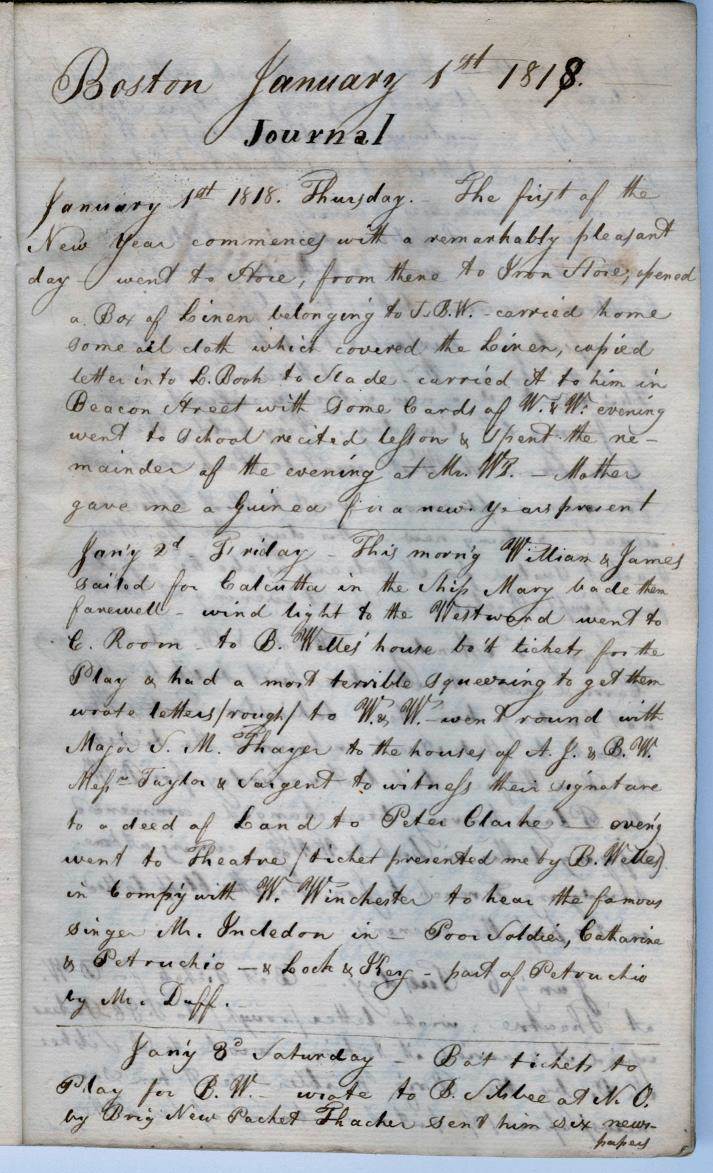 Boston January 1st 1818.
Journal
January 1st 1818. Thursday. - The first of the
New Year commences with a remarkably pleasant
day - went to Store, from there to Iron Store, opened
a Box of Linen belonging to S.B.W. - carried home
some oil cloth which covered the Linen, copied
letter into L. Book to Slade - carried it to him in
Beacon Street with some Cards of W. & W. evening
went to School recited lesson & spent the re-
mainder of the evening at Mr. WP. - Mother
gave me a Guinea for a new years present
Jan'y 2d - Friday - This morn'g William & James
sailed for Calcutta in the Ship Mary bade them
farewell - wind light to the Westward went to
C. Room - to B. Welles' house bo't tickets for the
Play & had a most terrible squeezing to get them
wrote letters /rough/ to W. & W. - went round with
Major S. M. Thayer to the houses of A. J. & B. W.
Messrs Taylor & Sargent to witness their signature
to a deed of Land to Peter Clarke - even'g
went to Theatre /ticket presented me by B. Welles)
in Comp'y with W. Winchester to hear the famous
singer Mr. Incledon in - Poor Soldier, Catharine
& Petruchio - & Lock & Key - part of Petruchio
by Mr. Duff. -
Jan'y 3d Saturday - Bo't tickets to
Play for B. W. - wrote to B. Silsbee at N. O.
by Brig New Packet Thacher sent him six news-
papers